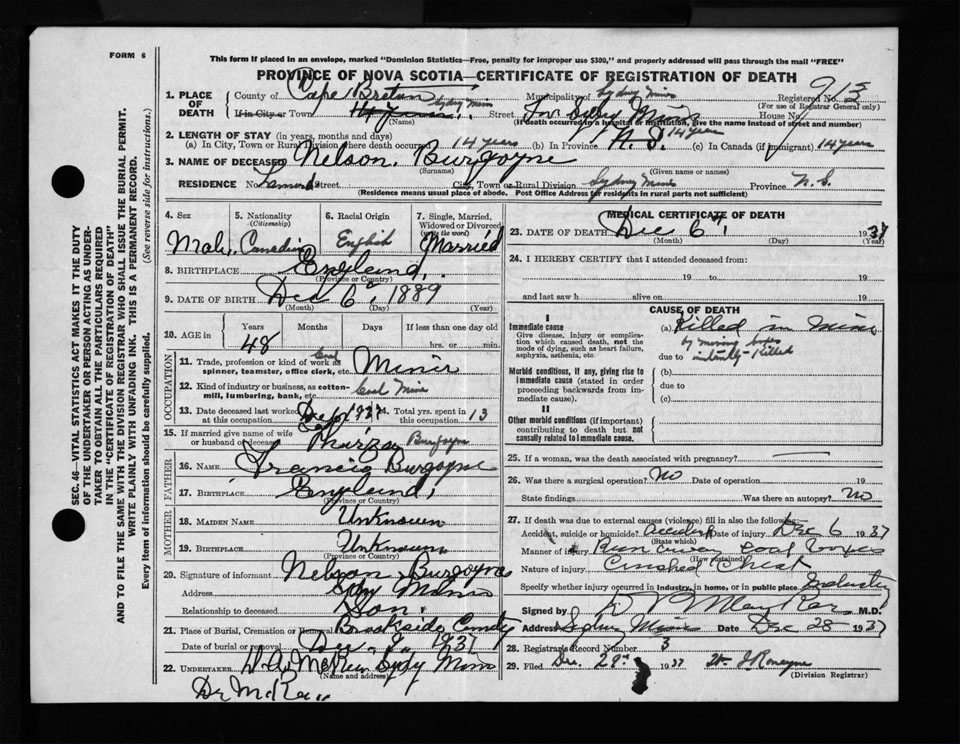 FORM 6
This form if placed in an envelope, marked "Dominion Statistics—Free, penalty for improper use $300," and properly addressed will pass through the mail "FREE"
PROVINCE OF NOVA SCOTIA—CERTIFICATE OF REGISTRATION OF DEATH
SEC. 46—VITAL STATISTICS ACT MAKES IT THE DUTY
OF THE UNDERTAKER OR PERSON ACTING AS UNDER-
TAKER TO OBTAIN ALL THE PARTICULARS REQUIRED
IN THE "CERTIFICATE OF REGISTRATION OF DEATH"
AND TO FILE THE SAME WITH THE DIVISION REGISTRAR WHO SHALL ISSUE THE BURIAL PERMIT.
WRITE PLAINLY WITH UNFADING INK. THIS IS A PERMANENT RECORD.
Every item of information should be carefully supplied. (See reverse side for instructions.)
1. PLACE OF DEATH County of Cape Breton Municipality of Sydney Mines Registered No. 915
(For use of Registrar General only)
If in City or Town Sydney Mines Street Sydney Mines House No.
(Name) (If death occurred in a hospital or institution, give the name instead of street and number)
2. LENGTH OF STAY (in years, months and days)
(a) In City, Town or Rural Division where death occurred 14 years (b) In Province N.S. 14 years (c) In Canada (if immigrant) 14 years
3. NAME OF DECEASED Nelson. Burgoyne
(Surname) (Given name or names)
RESIDENCE No. Street City, Town or Rural Division Sydney Mines Province N.S.
(Residence means usual place of abode. Post Office Address for residents in rural parts not sufficient)
4. Sex Male
5. Nationality (Citizenship) Canadian
6. Racial Origin English
7. Single, Married, Widowed or Divorced (write the word) Married
8. BIRTHPLACE England.
(Province or Country)
9. DATE OF BIRTH Dec 6, 1889
(Month) (Day) (Year)
10. AGE in Years 48 Months Days If less than one day old hrs. or min.
OCCUPATION
11. Trade, profession or kind of work as spinner, teamster, office clerk, etc. Coal Miner
12. Kind of industry or business, as cotton-mill, lumbering, bank, etc. Coal Mine
13. Date deceased last worked at this occupation Dec 1937 14. Total yrs. spent in 13
15. If married give name of wife or husband of deceased Thurza Burgoyne
FATHER
16. NAME Francis Burgoyne
17. BIRTHPLACE England,
(Province or Country)
MOTHER
18. MAIDEN NAME Unknown
19. BIRTHPLACE Unknown
(Province or Country)
20. Signature of informant Nelson Burgoyne
Address Sydy Mines
Relationship to deceased Son.
21. Place of Burial, Cremation or Removal Brookside Cemetery
Date of burial or removal Dec. 9, 1937
22. UNDERTAKER Sydy Mines
(Name and address)
Dr McRae
MEDICAL CERTIFICATE OF DEATH
23. DATE OF DEATH Dec 6, 1937
(Month) (Day) (Year)
24. I HEREBY CERTIFY that I attended deceased from:
19 to 19
and last saw h alive on 19
CAUSE OF DEATH
I
Immediate cause
Give disease, injury or complication which caused death, not the mode of dying, such as heart failure, asphyxia, asthenia, etc.
(a) Killed in Mine
by moving boxes
due to instantly Killed
Morbid conditions, if any, giving rise to immediate cause (stated in order proceeding backwards from immediate cause).
(b)
due to
(c)
II
Other morbid conditions (if important) contributing to death but not causally related to immediate cause.
25. If a woman, was the death associated with pregnancy?
26. Was there a surgical operation? No Date of operation 19
State findings Was there an autopsy? No
27. If death was due to external causes (violence) fill in also the following:
Accident, suicide or homicide? accident Date of injury Dec 6 1937
(State which)
Manner of injury Run away coal boxes
(How sustained)
Nature of injury Crushed Chest
Specify whether injury occurred in Industry, in home, or in public place. Industry
Signed by M.D.
Address Sydney Mines Date Dec 28 1937
28. Registrar's Record Number 3
29. Filed Dec. 29th 1937
(Division Registrar)